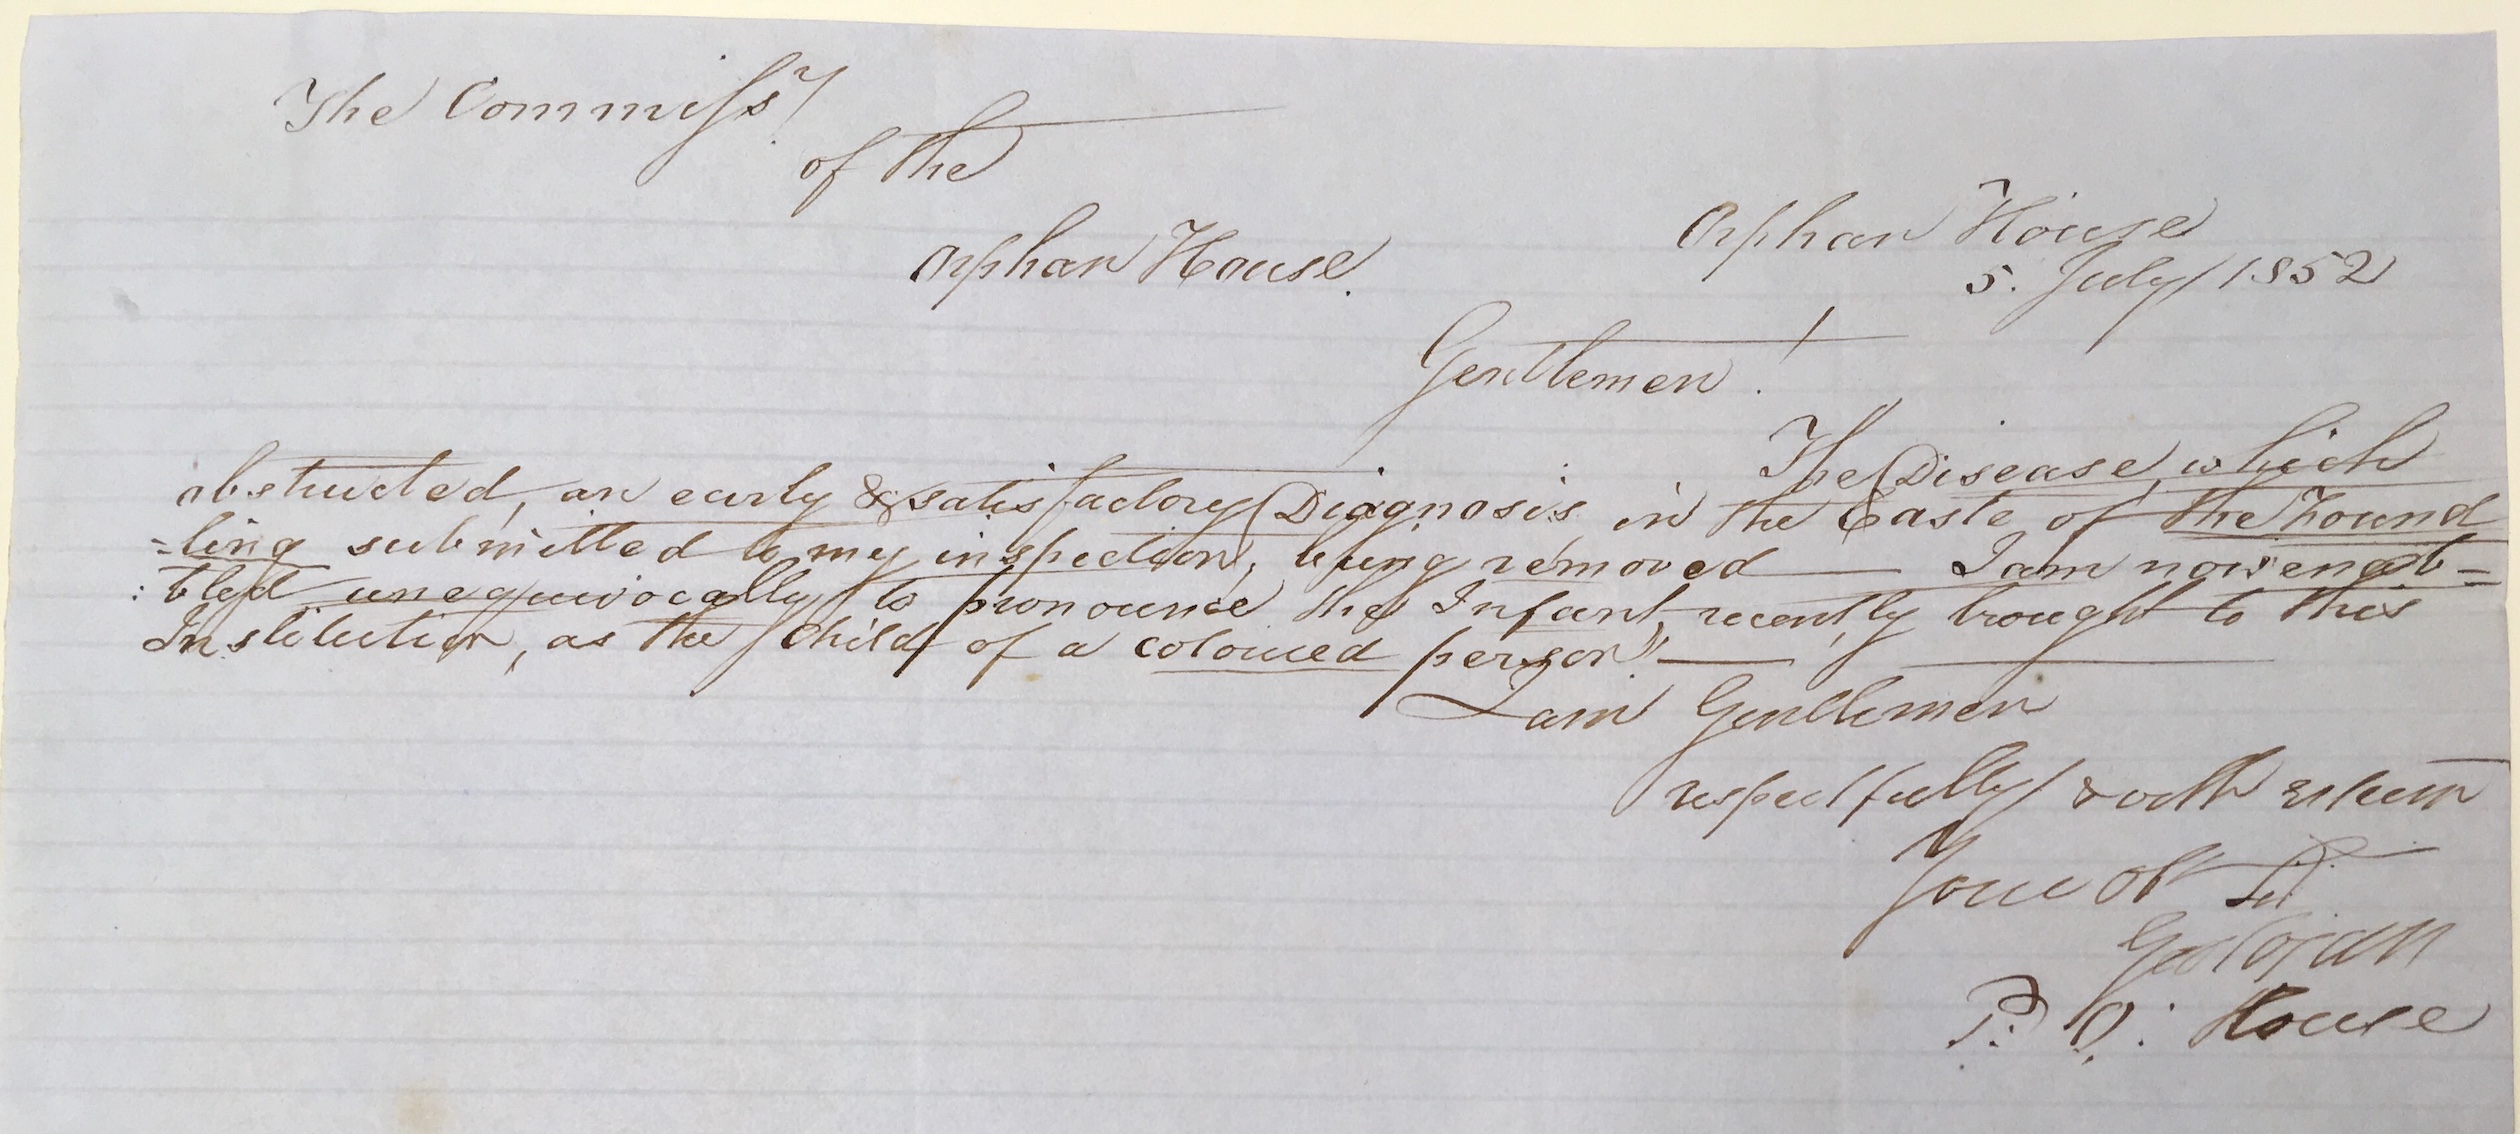 The Commissy
of the
Orphan House.
Orphan House
5. July 1852
Gentlemen!
The Disease, which
obstructed, an early & satisfactory Diagnosis in the Caste of the Found
=ling submitted to my inspection, being removed — I am now enab=
:bled unequivocally to pronounce the Infant, recently brought to this
Institution, as the Child of a coloured person —
I am Gentlemen
respectfully & with esteem
Your Obt
P. O. House